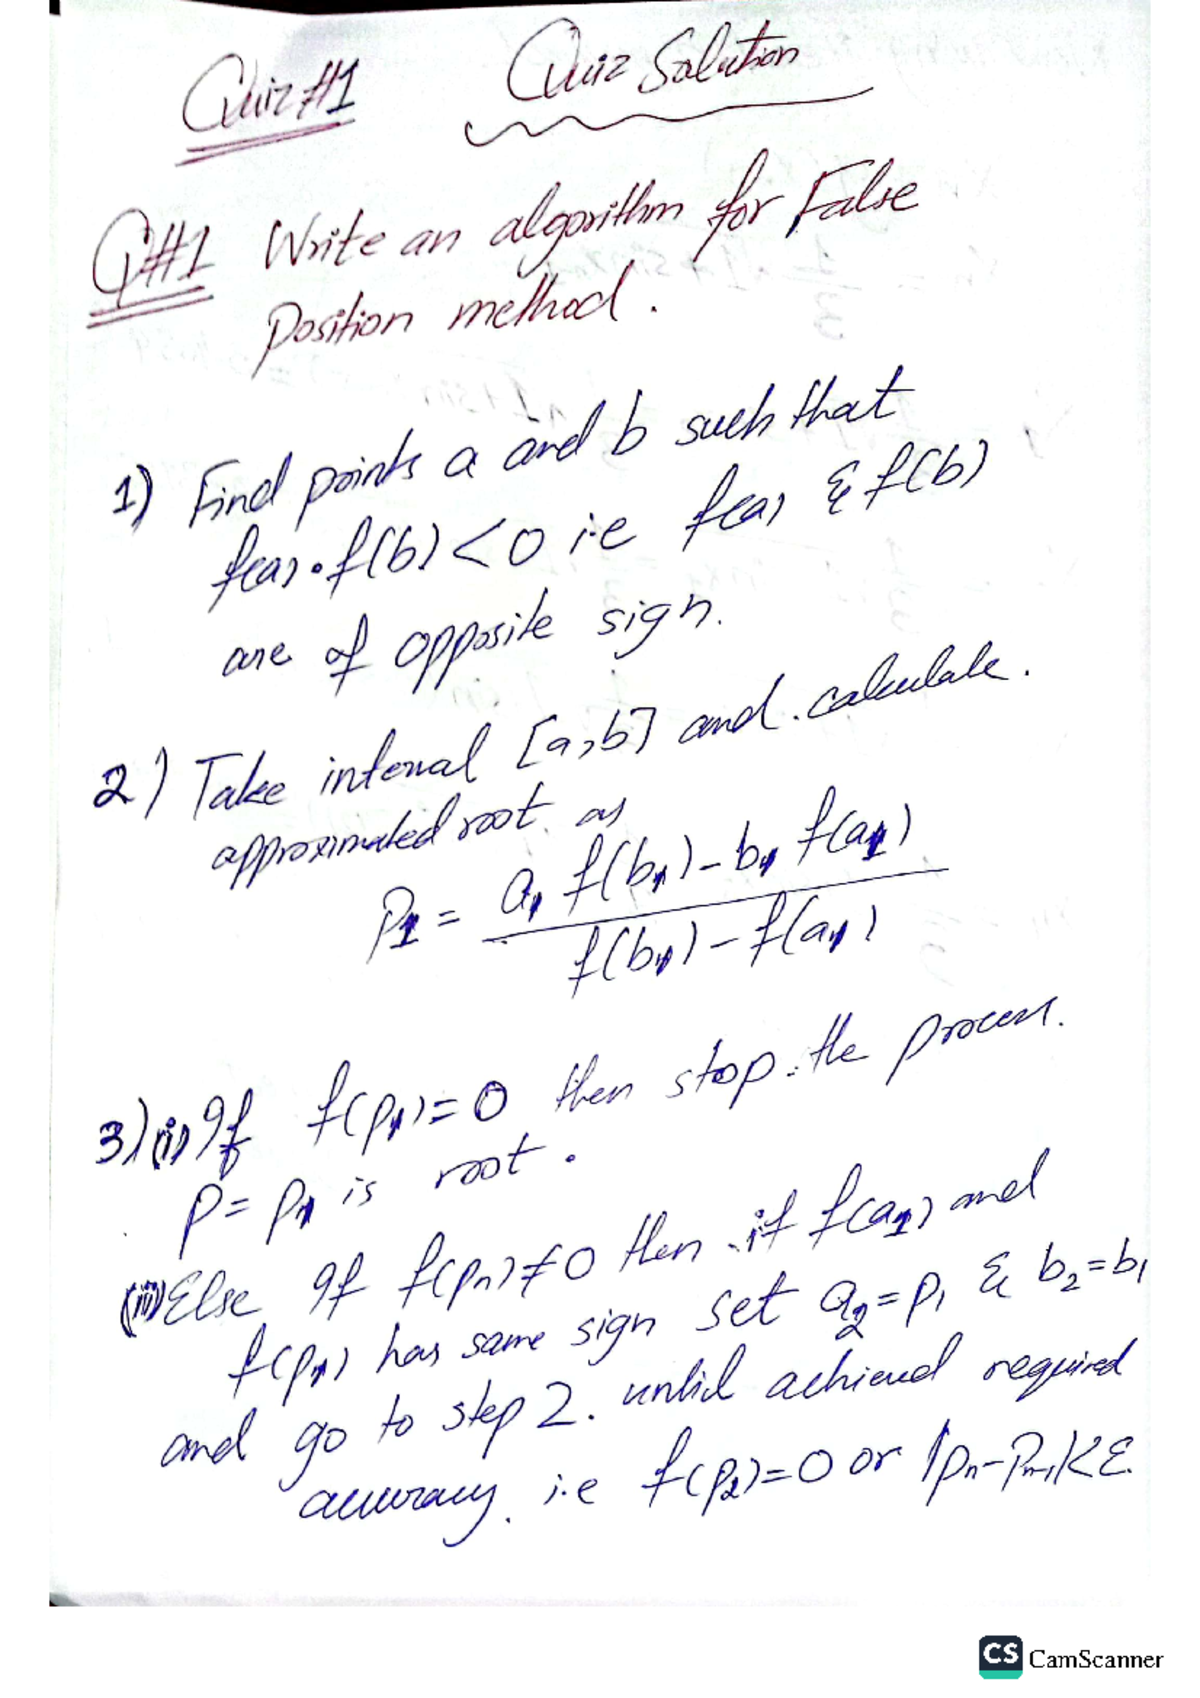 Quiz #1 Quiz Solution
Q#1 Write an algorithm for False
Position method.
1) Find points a and b such that
f(a)·f(b)<0 i.e f(a) & f(b)
are of opposite sign.
2) Take interval [a,b] and calculate.
approximated root as
P₁ = a₁ f(b₁) - b₁ f(a₁)
f(b₁) - f(a₁)
3) (i) If f(p₁)=0 then stop the process.
p = p₁ is root.
(ii) Else If f(pₙ)≠0 then if f(a₁) and
f(p₁) has same sign set a₂=p₁ & b₂=b₁
and go to step 2. until achieved required
accuracy. i.e f(p₂)=0 or |pₙ-pₙ₋₁|<ε.
CS CamScanner